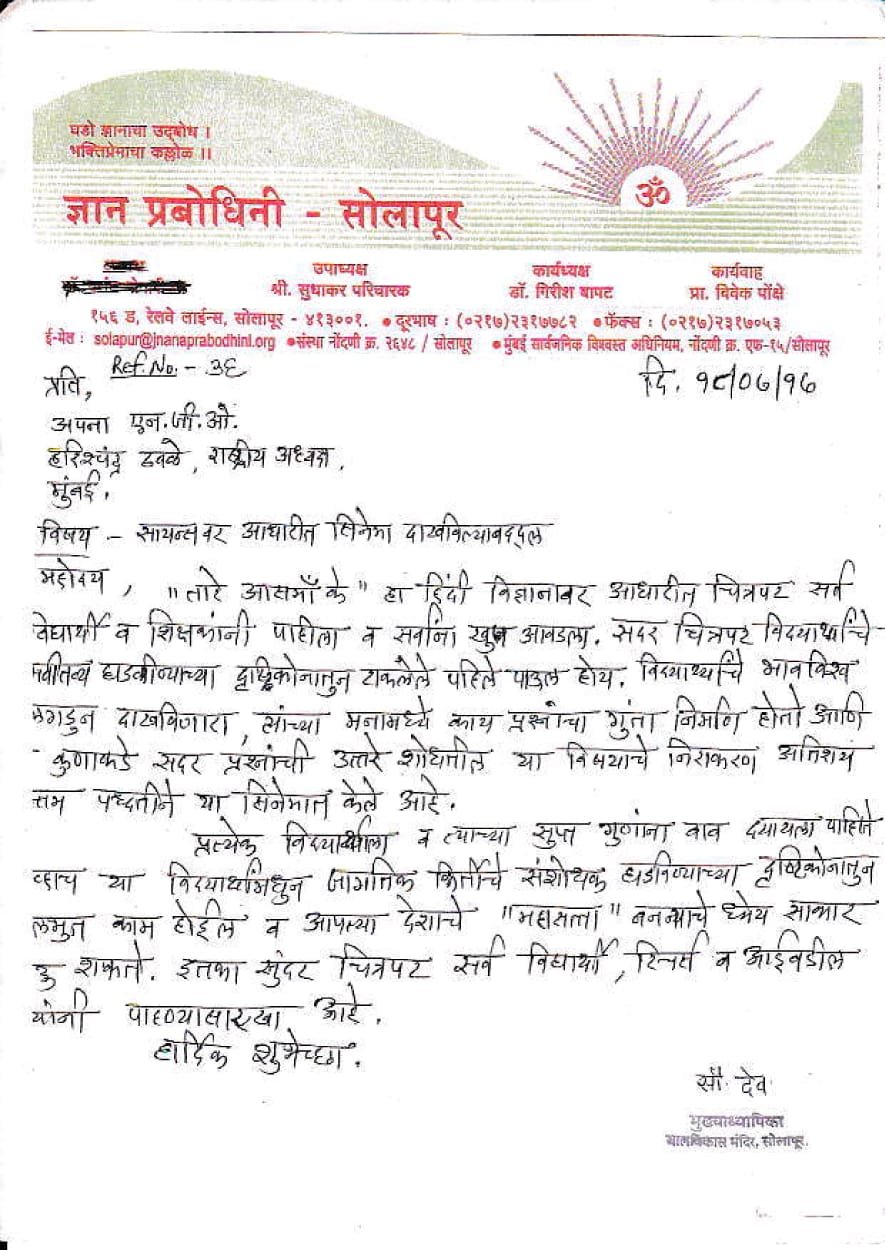 घडो ज्ञानाचा उद्बोध ।
भक्तिप्रेमाचा कल्लोळ ।।
ॐ
ज्ञान प्रबोधिनी - सोलापूर
उपाध्यक्ष कार्याध्यक्ष कार्यवाह
श्री. सुधाकर परिचारक डॉ. गिरीश बापट प्रा. विवेक पोंक्षे
१५६ ड, रेल्वे लाईन्स, सोलापूर - ४१३००१. ● दूरभाष : (०२१७)२३१७७८२ ● फॅक्स : (०२१७)२३१७०५३
ई-मेल : solapur@jnanaprabodhini.org ● संस्था नोंदणी क्र. २६४८ / सोलापूर ● मुंबई सार्वजनिक विश्वस्त अधिनियम, नोंदणी क्र. एफ-१५/सोलापूर
Ref. No. - ३६
प्रति, दि. १८/०७/१७
अपना एन.जी.ओ.
हरिश्चंद्र ढवळे, राष्ट्रीय अध्यक्ष,
मुंबई.
विषय - सायन्सवर आधारीत सिनेमा दाखविल्याबद्दल
महोदय, "तारे आसमाँ के" हा हिंदी विज्ञानावर आधारीत चित्रपट सर्व
वेद्यार्थी व शिक्षकांनी पाहीला व सर्वांना खुप आवडला. सदर चित्रपट विदयार्थ्यांचे
घडवीण्याच्या दृष्टिकोनातुन टाकलेले पहिले पाऊल होय. विदयार्थ्यांचे भावविश्व
लगडुन दाखविणारा, त्यांच्या मनामध्ये काय प्रश्नांचा गुंता निर्माण होतो आणि
कुणाकडे सदर प्रश्नांची उत्तरे शोधतील या विषयाचे निराकरण अतिशय
त्तम पध्दतीने या सिनेमात केले आहे.
प्रत्येक विदयार्थ्याला व त्याच्या सुप्त गुणांना वाव दयायला पाहिजे
व्हाच या विदयार्थ्यांमधुन जागतिक किर्तीचे संशोधक घडविण्याच्या दृष्टिकोनातुन
काम होईल व आपल्या देशाचे "महासत्ता" बनन्याचे ध्येय साकार
हु शकतो. इतका सुंदर चित्रपट सर्व विद्यार्थी, टिचर्स व आईवडील
यांनी पाहण्यासारखा आहे.
हार्दिक शुभेच्छा.
सौ. देव
मुख्याध्यापिका
बालविकास मंदिर, सोलापूर.